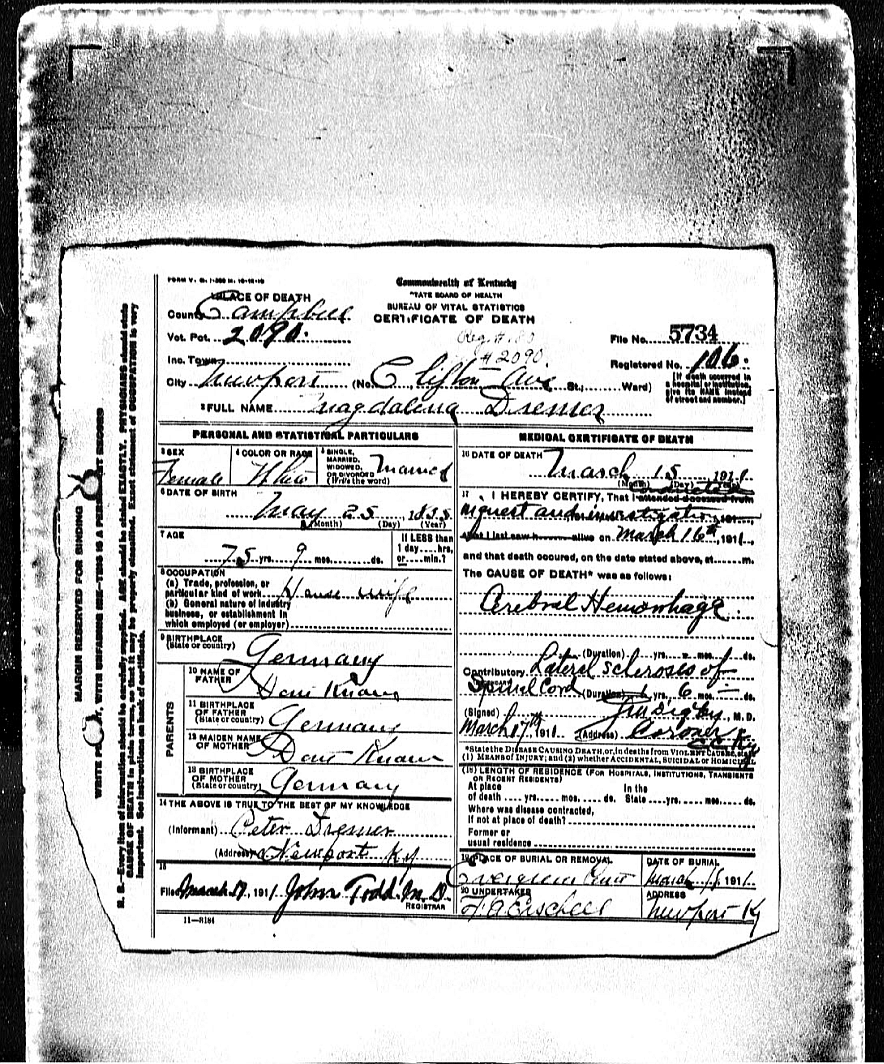 FORM V. S. 1-
Commonwealth of Kentucky
STATE BOARD OF HEALTH
BUREAU OF VITAL STATISTICS
CERTIFICATE OF DEATH
PLACE OF DEATH
County Campbell
Vot. Pct. 2090.
Inc. Town
City Newport (No. Clifton Ave St., Ward)
#2090
File No. 5734
Registered No. 106.
[If death occurred in a hospital or institution, give its NAME instead of street and number.]
2 FULL NAME Magdalena Dremer
PERSONAL AND STATISTICAL PARTICULARS
3 SEX Female
4 COLOR OR RACE White
5 SINGLE, MARRIED, WIDOWED, OR DIVORCED (Write the word) Married
6 DATE OF BIRTH
May 25, 1835
(Month) (Day) (Year)
7 AGE
75 yrs. 9 mos. ds.
If LESS than 1 day, hrs, or min.?
8 OCCUPATION
(a) Trade, profession, or particular kind of work House wife
(b) General nature of industry business, or establishment in which employed (or employer)
9 BIRTHPLACE
(State or country) Germany
PARENTS
10 NAME OF FATHER Dont Know
11 BIRTHPLACE OF FATHER (State or country) Germany
12 MAIDEN NAME OF MOTHER Dont Know
13 BIRTHPLACE OF MOTHER (State or country) Germany
14 THE ABOVE IS TRUE TO THE BEST OF MY KNOWLEDGE
(Informant) Peter Dremer
(Address) Newport Ky
15
Filed March 17, 1911 John Todd M.D.
REGISTRAR
11-3184
MEDICAL CERTIFICATE OF DEATH
16 DATE OF DEATH
March 15, 1911
(Month) (Day) (Year)
17 I HEREBY CERTIFY, That I attended deceased from
inquest and investigation, 191
that I last saw h alive on March 16th, 1911
and that death occured, on the date stated above, at m.
The CAUSE OF DEATH* was as follows:
Cerebral Hemorrhage
(Duration) yrs. mos. ds.
Contributory Lateral scleroses of
Spinal Cord (Duration) yrs. 6 mos. ds.
(Signed) M. D.
March 17th, 1911 (Address) Coroner
C.C. Ky
*State the DISEASE CAUSING DEATH, or, in deaths from VIOLENT CAUSES, state
(1) MEANS of INJURY; and (2) whether ACCIDENTAL, SUICIDAL or HOMICIDAL
(18) LENGTH OF RESIDENCE (FOR HOSPITALS, INSTITUTIONS, TRANSIENTS OR RECENT RESIDENTS)
At place of death yrs. mos. ds. In the State yrs. mos. ds.
Where was disease contracted,
If not at place of death?
Former or
usual residence
19 PLACE OF BURIAL OR REMOVAL
Evergreen
DATE OF BURIAL
March 18, 1911
20 UNDERTAKER
ADDRESS
Newport Ky
MARGIN RESERVED FOR BINDING
N. B.—Every item of information should be carefully supplied. AGE should be stated EXACTLY. PHYSICIANS should state
CAUSE OF DEATH in plain terms, so that it may be properly classified. Exact statement of OCCUPATION is very
important. See instructions on back of certificate.